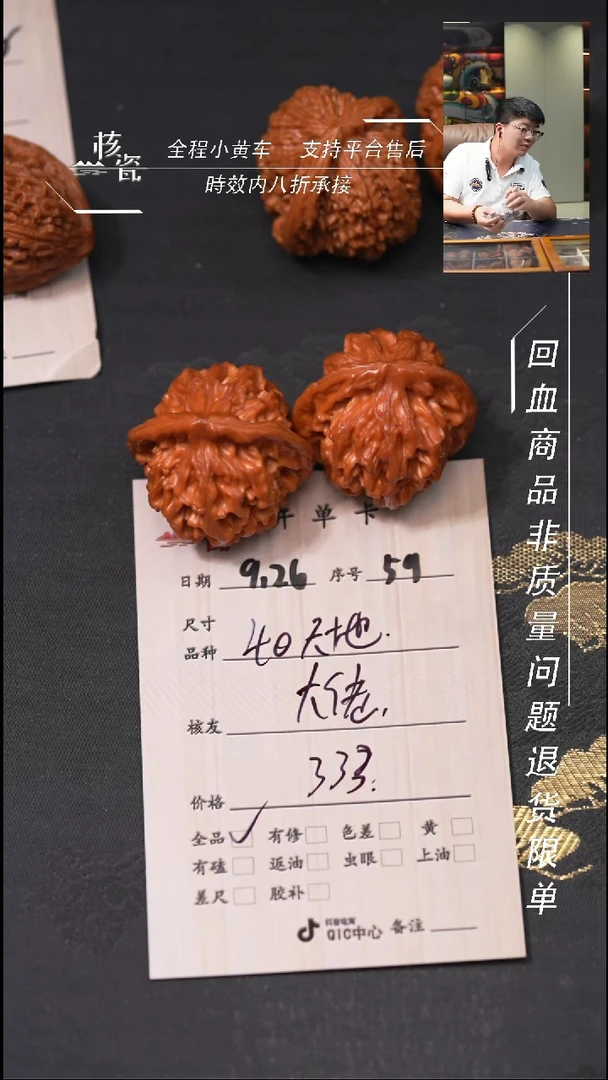 核瓷
全程小黄车 支持平台售后
時效内八折承接
回血商品非质量问题退货限单
开单卡
日期 9.26 序号 59
尺寸
品种 40天地.
核友 大佬,
价格 333.
全品 有修 色差 黄
有磕 返油 虫眼 上油
差尺 胶补
抖音电商
QIC中心 备注